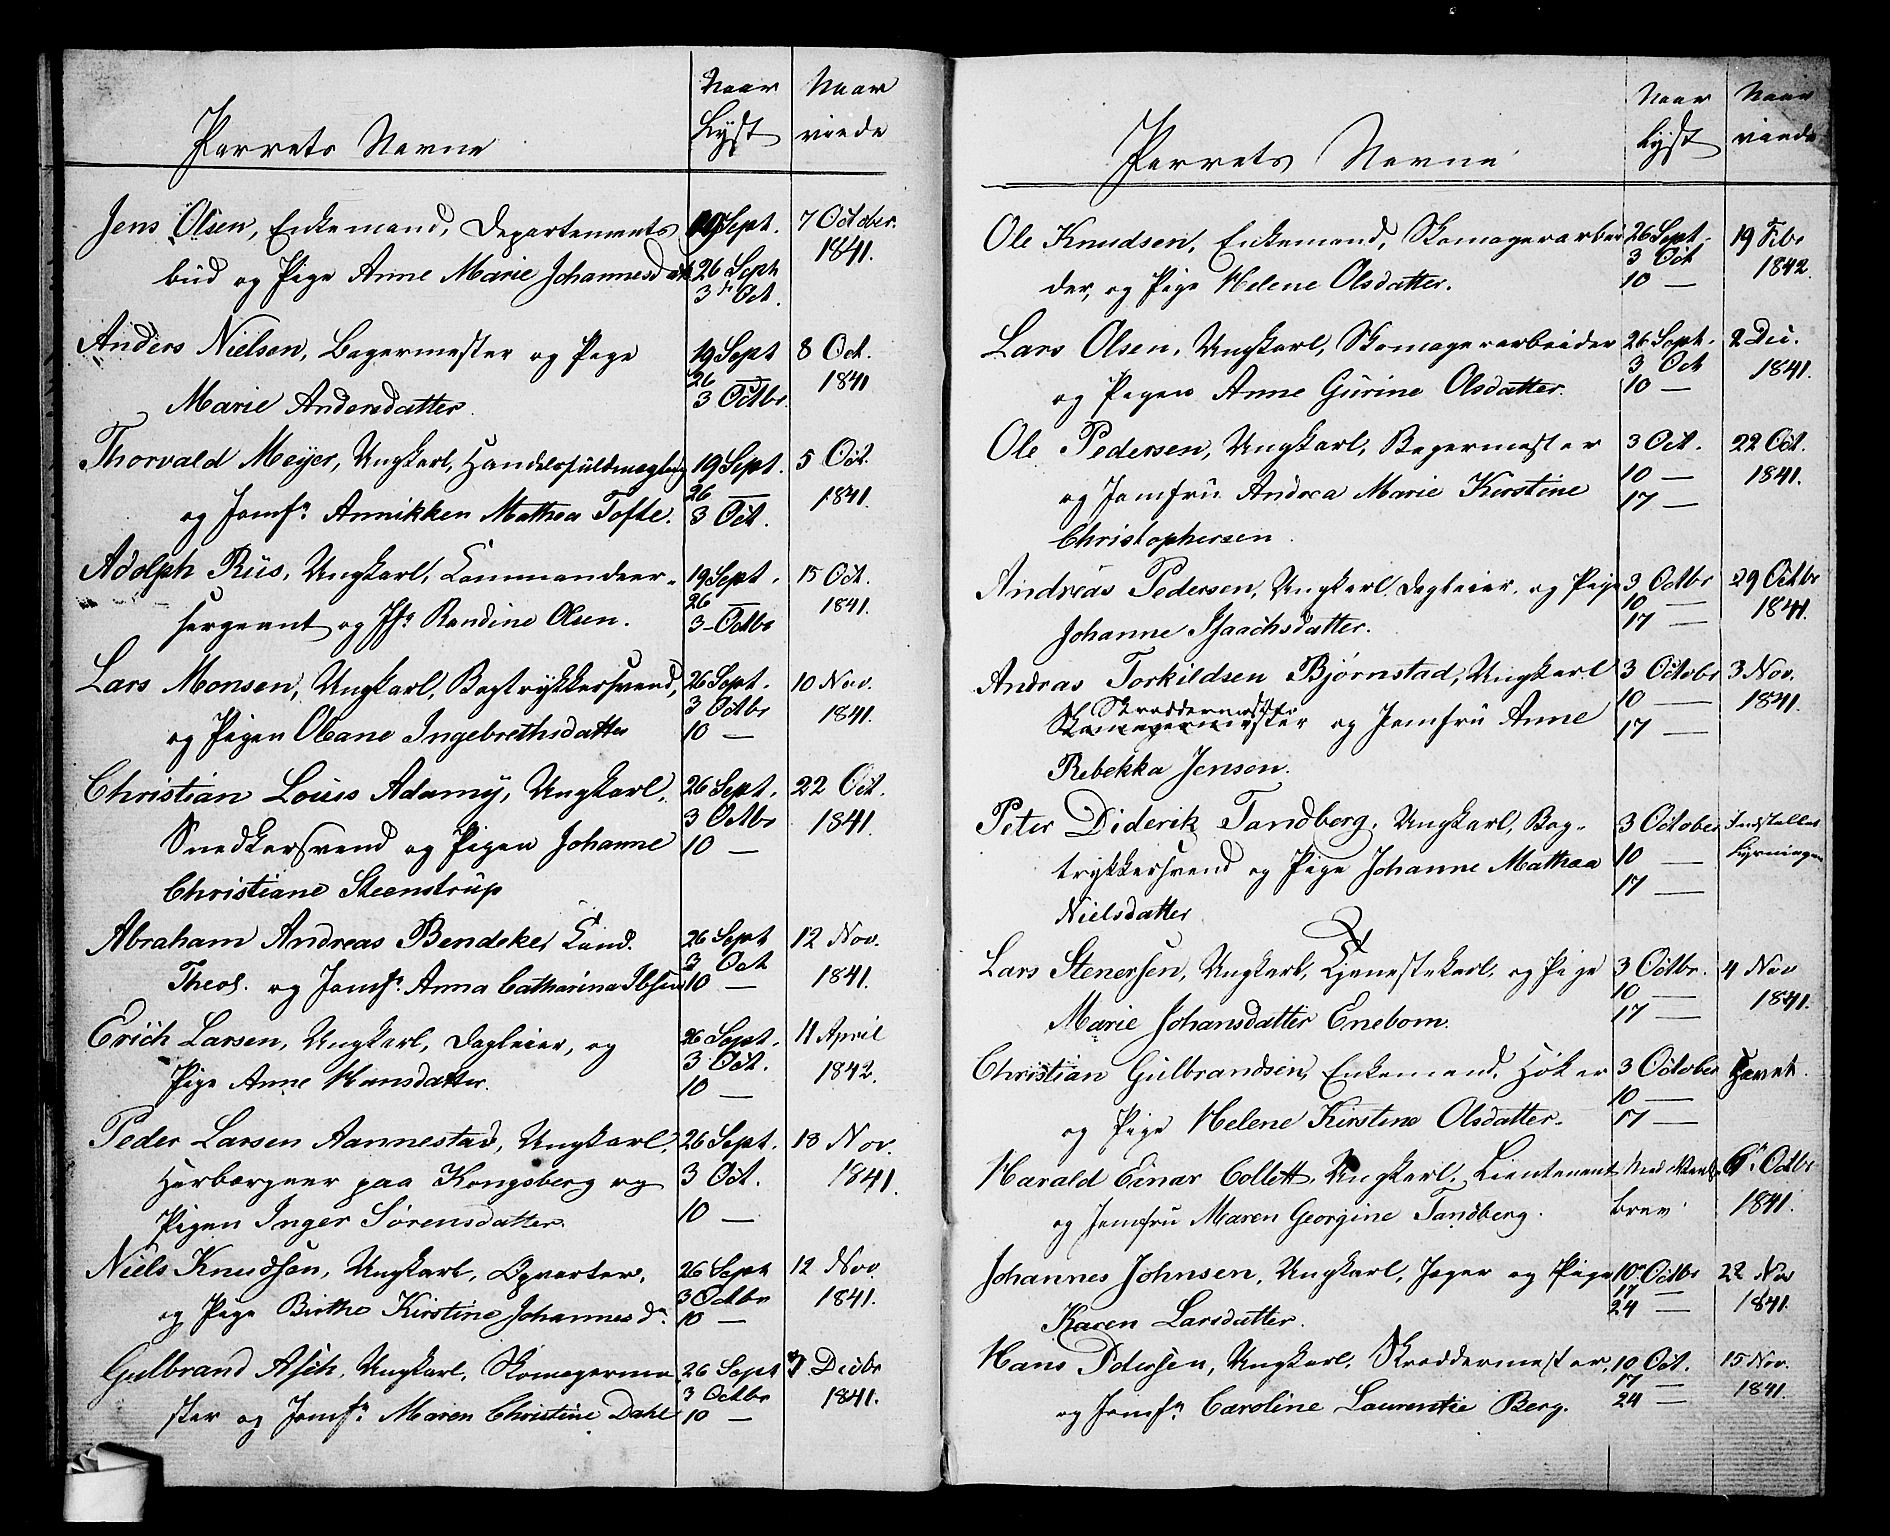 Parrets Navne
Naar Lyst
Naar viede
Jens Olsen, Enkemand, Departements 19 Sept. 7 October.
bud og Pige Anne Marie Johannesdatt 26 Sept 1841.
3die Oct.
Anders Nielsen, Bagermester og Pige 19 Sept 8 Oct.
26 — 1841
Marie Andersdatter. 3 Octbr.
Thorvald Meyer, Ungkarl, Handelsfuldmægtig 19 Sept. 5 Oct.
26 — 1841.
og Jomfr. Annikken Mathea Tofte. 3 Oct.
Adolph Riis, Ungkarl, Commandeer- 19 Sept. 15 Oct.
26 — 1841.
sergeant og Jfr. Randine Olsen. 3 Octbr
Lars Monsen, Ungkarl, Bogtrykkersvend, 26 Sept. 10 Nov.
3 Octbr 1841.
og Pigen Oleane Ingebrethsdatter 10 —
Christian Louis Adamy, Ungkarl, 26 Sept. 22 Oct.
3 Octbr 1841.
Snedkersvend og Pigen Johanne 10 —
Christiane Steenstrup
Abraham Andreas Bendeke, Cand. 26 Sept 12 Nov.
3 Oct
Theol. og Jomfr. Anna Catharina Ibsen 10 — 1841.
Erich Larsen, Ungkarl, Dagleier, og 26 Sept. 11 April
3 Oct. 1842.
Pige Anne Hansdatter. 10 —
Peder Larsen Aannestad, Ungkarl, 26 Sept. 18 Nov.
Herbergeer paa Kongsberg og 3 Oct. 1841.
Pigen Inger Sørensdatter. 10 —
Niels Knudsen, Ungkarl, Opvarter, 26 Sept 12 Nov
3 Octbr 1841.
og Pige Birthe Kirstine Johannesd. 10 —
Gulbrand Asch, Ungkarl, Skomagerme 26 Sept 7 Decbr
3 Octbr 1841.
ster og Jomfr. Maren Christine Dahl 10 —
Parrets Navne
Naar Lyst
Naar viede
Ole Knudsen, Enkemand, Skomagerarbei 26 Sept. 19 Febr
3 Oct 1842.
der, og Pige Helene Olsdatter. 10 —
Lars Olsen, Ungkarl, Skomagerarbeider 26 Sept. 2 Dec.
3 Oct 1841.
og Pigen Anne Gurine Olsdatter. 10 —
Ole Pedersen, Ungkarl, Bagermester 3 Oct. 22 Oct.
10 — 1841.
og Jomfru Andrea Marie Kirstine 17 —
Christophersen.
Andreas Pedersen, Ungkarl, Dagleier, og Pige 3 Octbr 29 Octbr
10 — 1841.
Johanne Isaachsdatter. 17 —
Andras Torkildsen Bjørnstad, Ungkarl 3 Octobr 3 Nov.
Skreddermester 10 — 1841.
Skomagermester og Jomfru Anne 17 —
Rebekka Jensen.
Peter Diderik Tandberg, Ungkarl, Bog- 3 October Indstilles
10 — Lysningen
trykkersvend og Pige Johanne Mathea 17 —
Nielsdatter
Lars Stenersen, Ungkarl, Tjenestekarl, og Pige 3 Octbr. 4 Nov
10 — 1841.
Marie Johansdatter Enebom. 17 —
Christian Gulbrandsen, Enkemand, Høker 3 October Hævet.
10 —
og Pige Helene Kirstine Olsdatter. 17 —
Harald Einar Collett, Ungkarl, Lieutenant 6te Octbr
og Jomfru Maren Georgine Tandberg. brev 1841.
Johannes Johnsen, Ungkarl, Jæger og Pige 10 Octbr 22 Nov
17 — 1841.
Karen Larsdatter. 24 —
Hans Pdersen, Ungkarl, Skreddermester, 10 Oct. 15 Nov.
17 — 1841.
og Jomfr. Caroline Laurentie Berg. 24 —